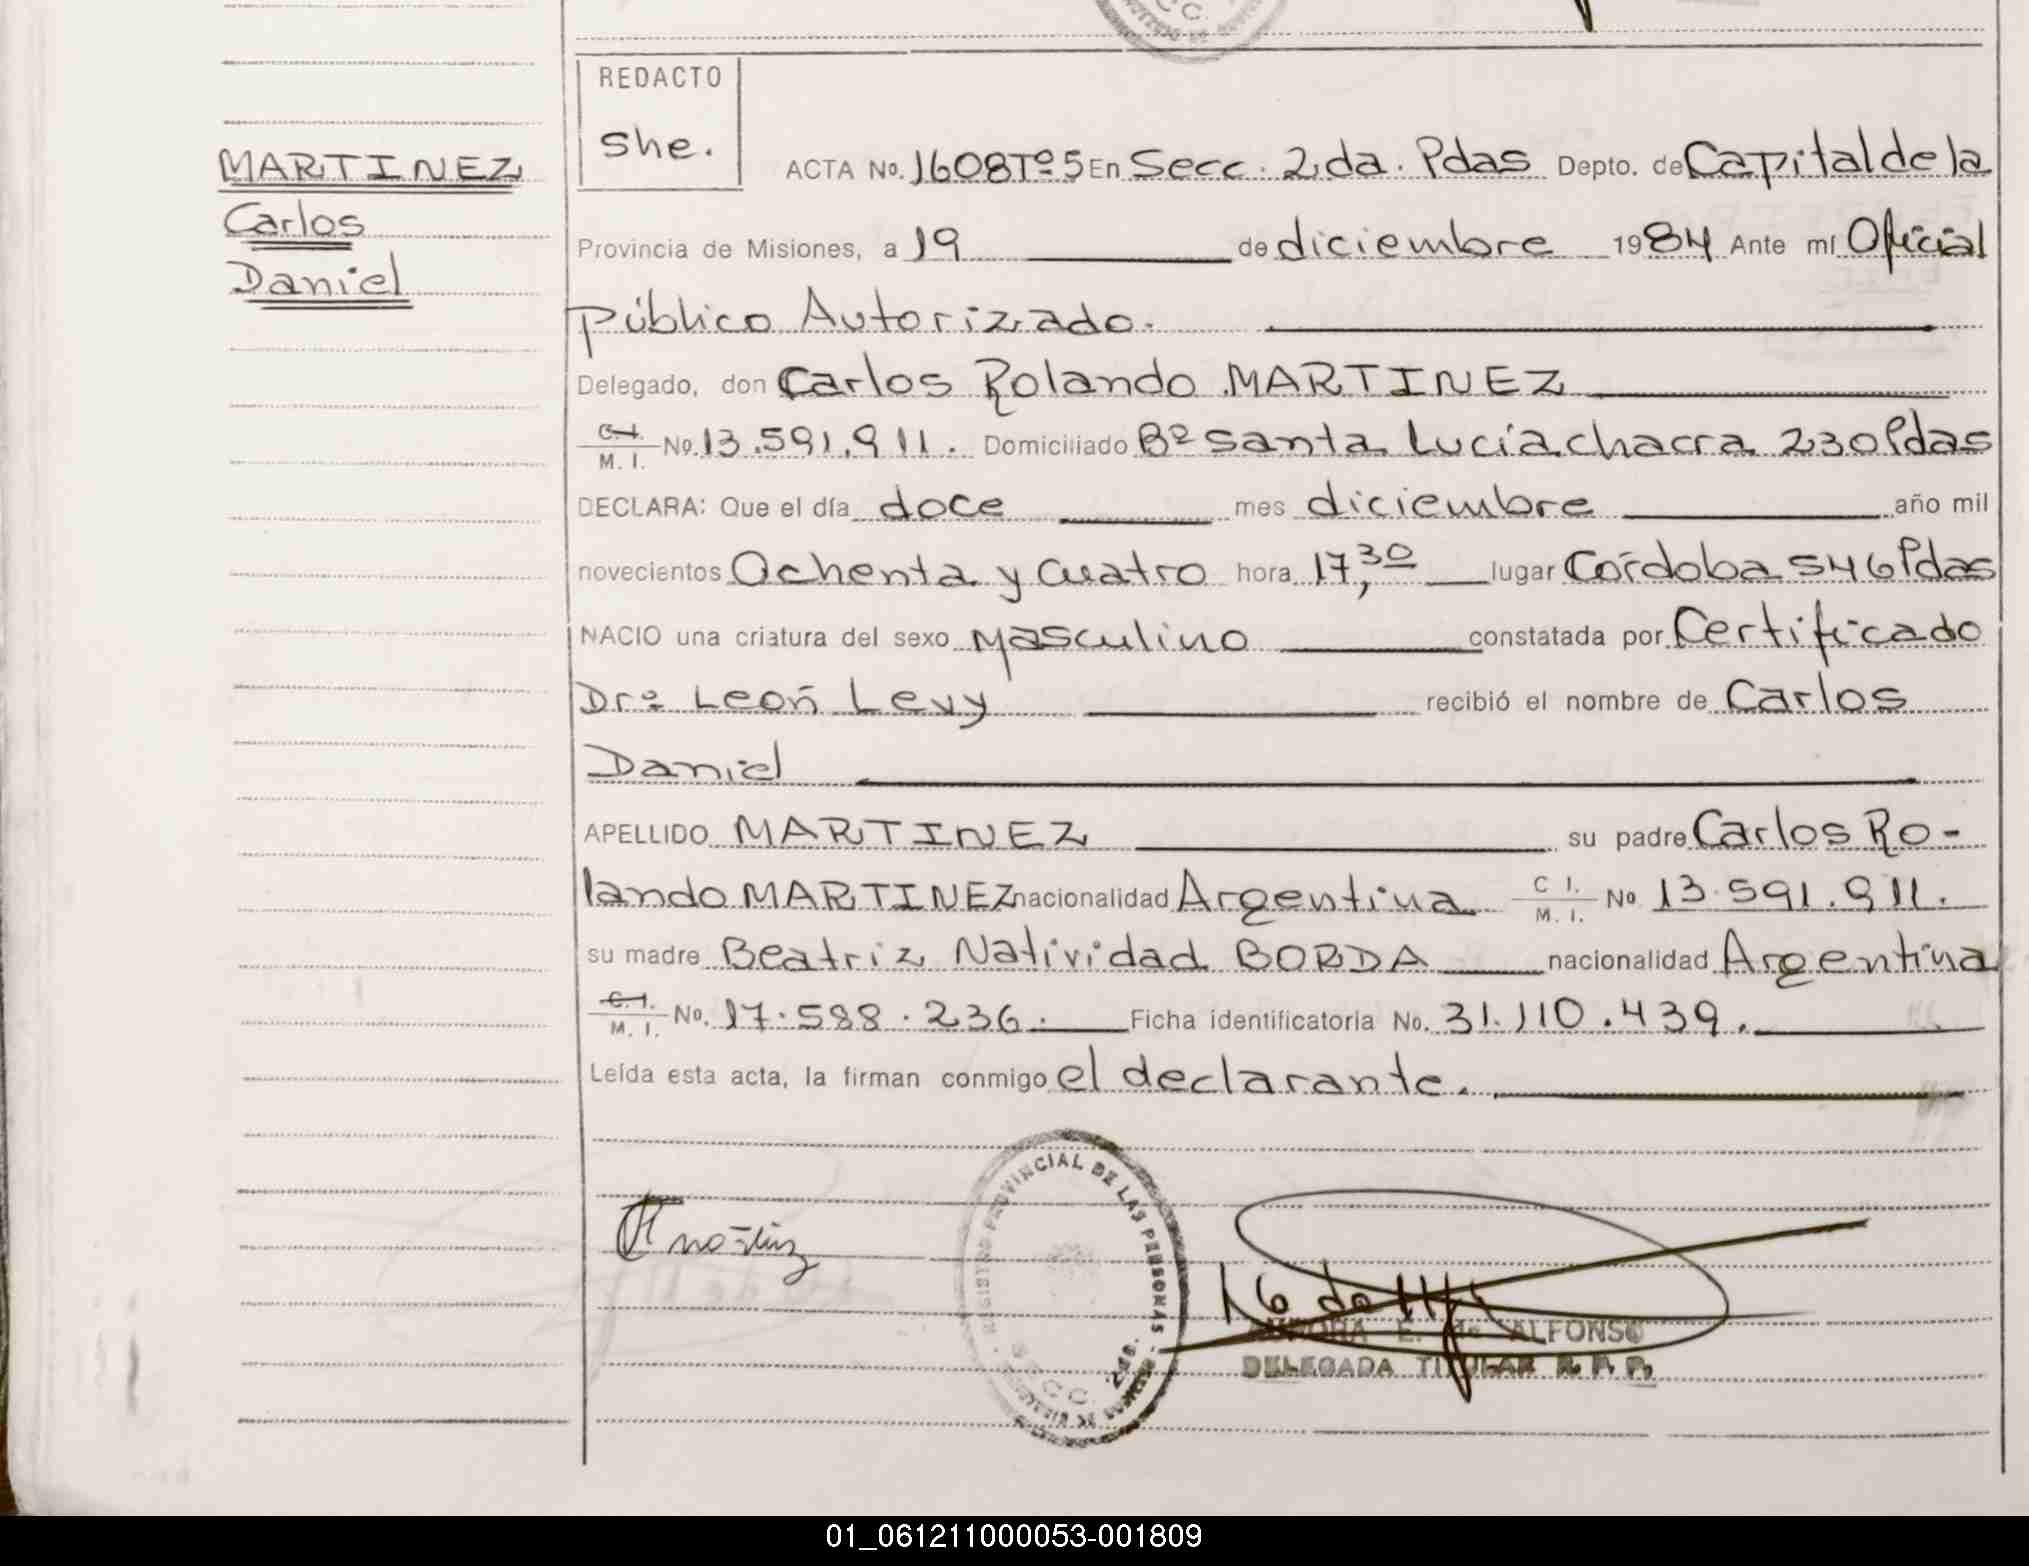 MARTINEZ
Carlos
Daniel
REDACTO
she.
ACTA No. 1608 Tº 5 En Secc. 2da. Pdas Depto. de Capital de la
Provincia de Misiones, a 19 de diciembre 1984 Ante mí Oficial
Público Autorizado.
Delegado, don Carlos Rolando MARTINEZ
C.I. M. I. No. 13.591.911. Domiciliado Bº Santa Lucía chacra 230 Pdas
DECLARA: Que el día doce mes diciembre año mil
novecientos Ochenta y cuatro hora 17,30 lugar Córdoba 546 Pdas
NACIO una criatura del sexo Masculino constatada por Certificado
Dr: León Levy recibió el nombre de Carlos
Daniel
APELLIDO MARTINEZ su padre Carlos Ro-
lando MARTINEZ nacionalidad Argentina C I. M. I. No 13.591.911.
su madre Beatriz Natividad BORDA nacionalidad Argentina
C.I. M. I. No. 17.588.236. Ficha identificatoria No. 31.110.439.
Leída esta acta, la firman conmigo el declarante.
REGISTRO PROVINCIAL DE LAS PERSONAS
E. de ALFONSO
DELEGADA TITULAR R. P. P.
01_061211000053-001809